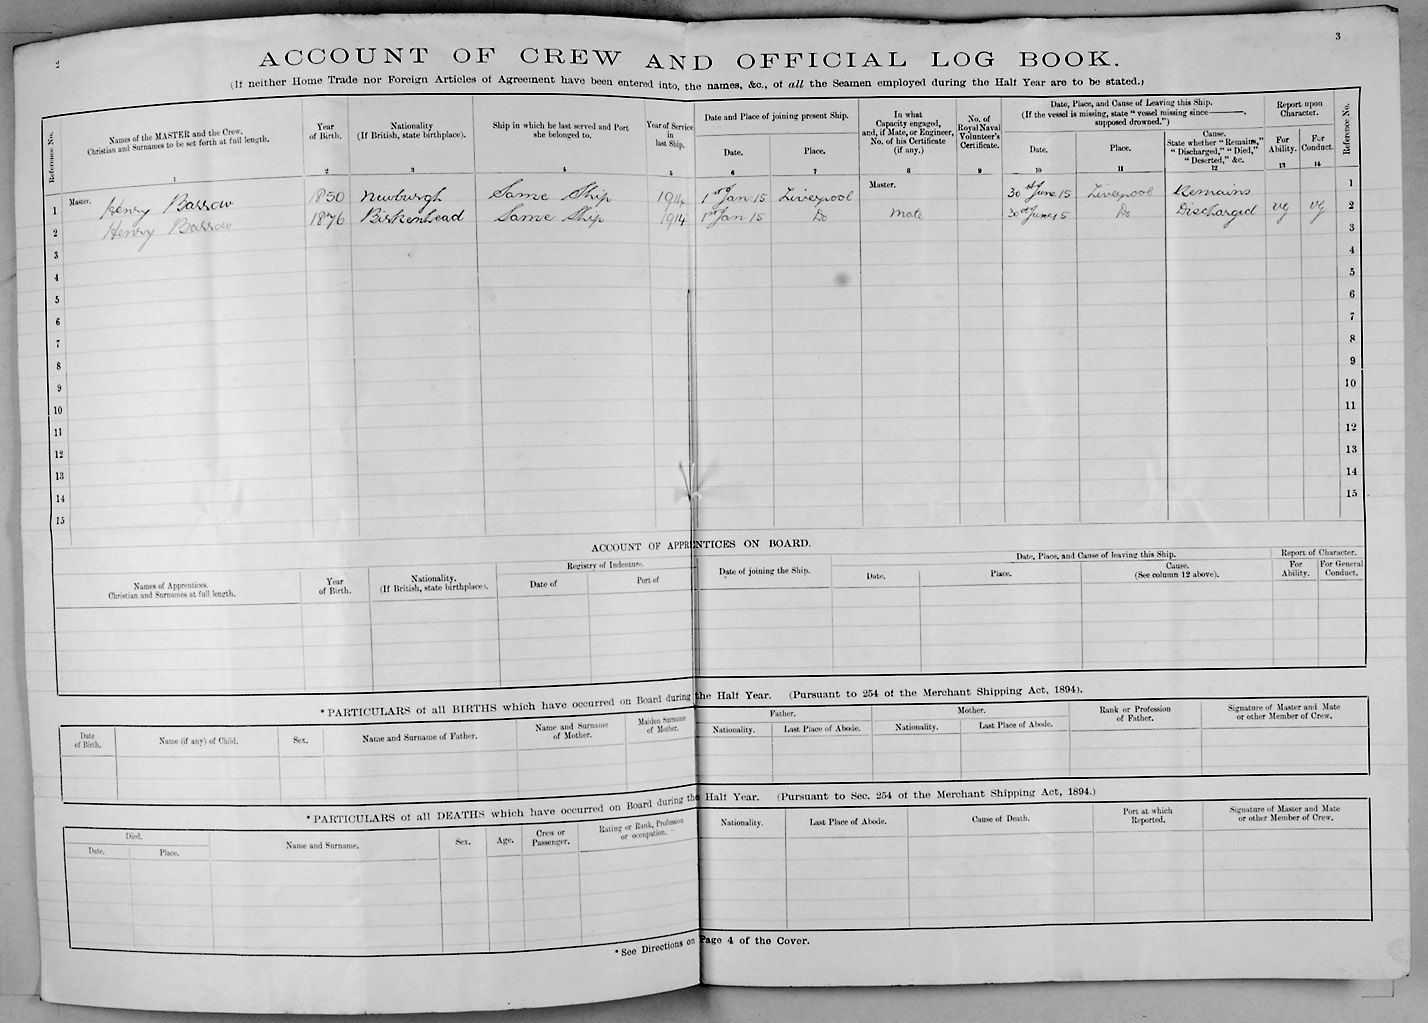 2
3
ACCOUNT OF CREW AND OFFICIAL LOG BOOK.
(If neither Home Trade nor Foreign Articles of Agreement have been entered into, the names, &c., of all the Seamen employed during the Half Year are to be stated.)
Reference No.
Names of the MASTER and the Crew.
Christian and Surnames to be set forth at full length.
1
Year
of Birth.
2
Nationality
(If British, state birthplace).
3
Ship in which he last served and Port
she belonged to.
4
Year of Service
in
last Ship.
5
Date and Place of joining present Ship.
Date.
6
Place.
7
In what
Capacity engaged,
and, if Mate, or Engineer,
No. of his Certificate
(if any.)
8
No. of
Royal Naval
Volunteer's
Certificate.
9
Date, Place, and Cause of Leaving this Ship.
(If the vessel is missing, state "vessel missing since———,
supposed drowned.")
Date.
10
Place.
11
Cause.
State whether "Remains,"
"Discharged," "Died,"
"Deserted," &c.
12
Report upon
Character.
For
Ability.
13
For
Conduct.
14
Reference No.
1 Master. Henry Barrow 1850 Newburgh Same Ship 1914 1st Jan 15 Liverpool Master. 30st June 15 Liverpool Remains 1
2 Henry Barrow 1876 Birkenhead Same Ship 1914 1st Jan 15 Do Mate 30st June 15 Do Discharged VG VG 2
3 3
4 4
5 5
6 6
7 7
8 8
9 9
10 10
11 11
12 12
13 13
14 14
15 15
ACCOUNT OF APPRENTICES ON BOARD.
Names of Apprentices.
Christian and Surnames at full length.
Year
of Birth.
Nationality.
(If British, state birthplace).
Registry of Indenture.
Date of
Port of
Date of joining the Ship.
Date, Place, and Cause of leaving this Ship.
Date.
Place.
Cause.
(See column 12 above).
Report of Character.
For
Ability.
For General
Conduct.
*PARTICULARS of all BIRTHS which have occurred on Board during the Half Year. (Pursuant to 254 of the Merchant Shipping Act, 1894).
Date
of Birth.
Name (if any) of Child.
Sex.
Name and Surname of Father.
Name and Surname
of Mother.
Maiden Surname
of Mother.
Father.
Nationality.
Last Place of Abode.
Mother.
Nationality.
Last Place of Abode.
Rank or Profession
of Father.
Signature of Master and Mate
or other Member of Crew.
*PARTICULARS of all DEATHS which have occurred on Board during the Half Year. (Pursuant to Sec. 254 of the Merchant Shipping Act, 1894.)
Died.
Date.
Place.
Name and Surname.
Sex.
Age.
Crew or
Passenger.
Rating or Rank, Profession
or occupation.
Nationality.
Last Place of Abode.
Cause of Death.
Port at which
Reported.
Signature of Master and Mate
or other Member of Crew.
*See Directions on Page 4 of the Cover.